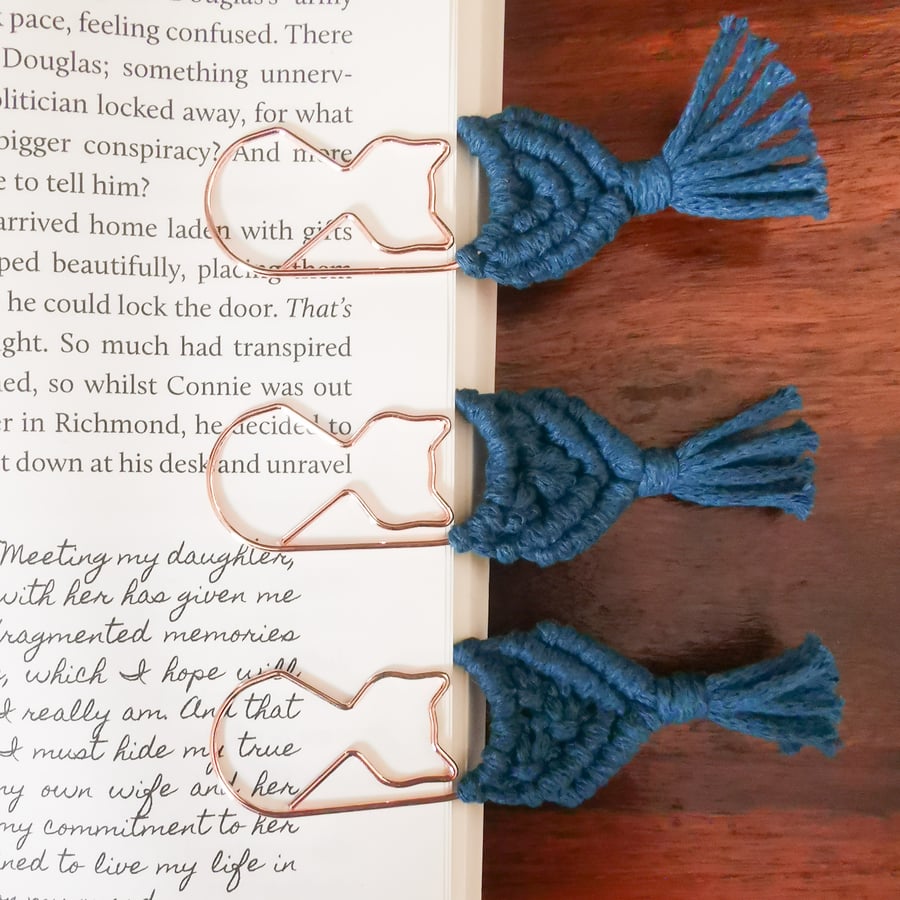 Douglas's army
pace, feeling confused. There
Douglas; something unnerv-
olitician locked away, for what
bigger conspiracy? And more
e to tell him?
arrived home laden with gifts
ped beautifully, placing them
he could lock the door. That's
ght. So much had transpired
ned, so whilst Connie was out
er in Richmond, he decided to
t down at his desk and unravel
Meeting my daughter,
with her has given me
ragmented memories
, which I hope will
I really am. And that
I must hide my true
my own wife and her
my commitment to her
ned to live my life in